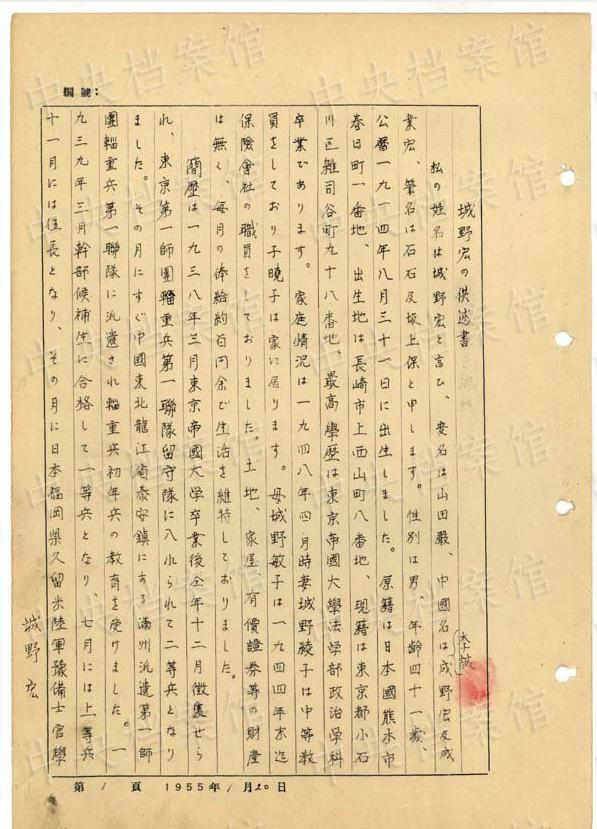 編號：
城野宏の供述書
私の姓名は城野宏と言ひ、変名は山田嚴、中國名は成野宏及成
李誠
業宏、筆名は石石及坂上保と申します。性別は男、年齢四十一歳、
公曆一九一四年八月三十一日に出生しました。原籍は日本國熊本市
春日町一番地、出生地は長崎市上西山町八番地、現籍は東京都小石
川区雑司谷町九十八番地、最高學歴は東京帝國大學法学部政治学科
卒業であります。家庭情況は一九四八年四月時妻城野綾子は中等教
員をしており子曉子は家に居ります。母城野敏子は一九四四年末迄
保險會社の職員をしておりました。土地、家屋、有價證券等の財産
は無く、毎月の俸給約百円余で生活を維持しておりました。
簡歴は一九三八年三月東京帝國大学卒業後仝年十二月徴裏せら
れ、東京第一師團輜重兵第一聯隊留守隊に入れられて二等兵となり
ました。その月にすぐ中國東北龍江省泰安鎮にある満州派遣第一師
團輜重兵第一聯隊に派遣され輜重兵初年兵の教育を受けました。一
九三九年三月幹部候補生に合格して一等兵となり、七月には上等兵
十一月には伍長となり、その月に日本福岡県久留米陸軍豫備士官學
城野宏
第 1 頁 1955年 1月20日
中央档案馆